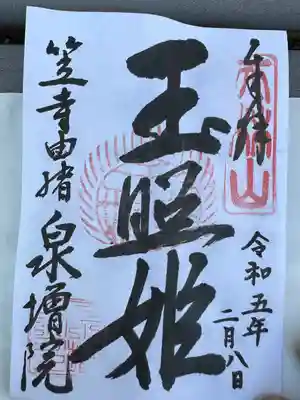 奉拝
令和五年
二月八日
玉照姫
笠寺由緒
泉増院